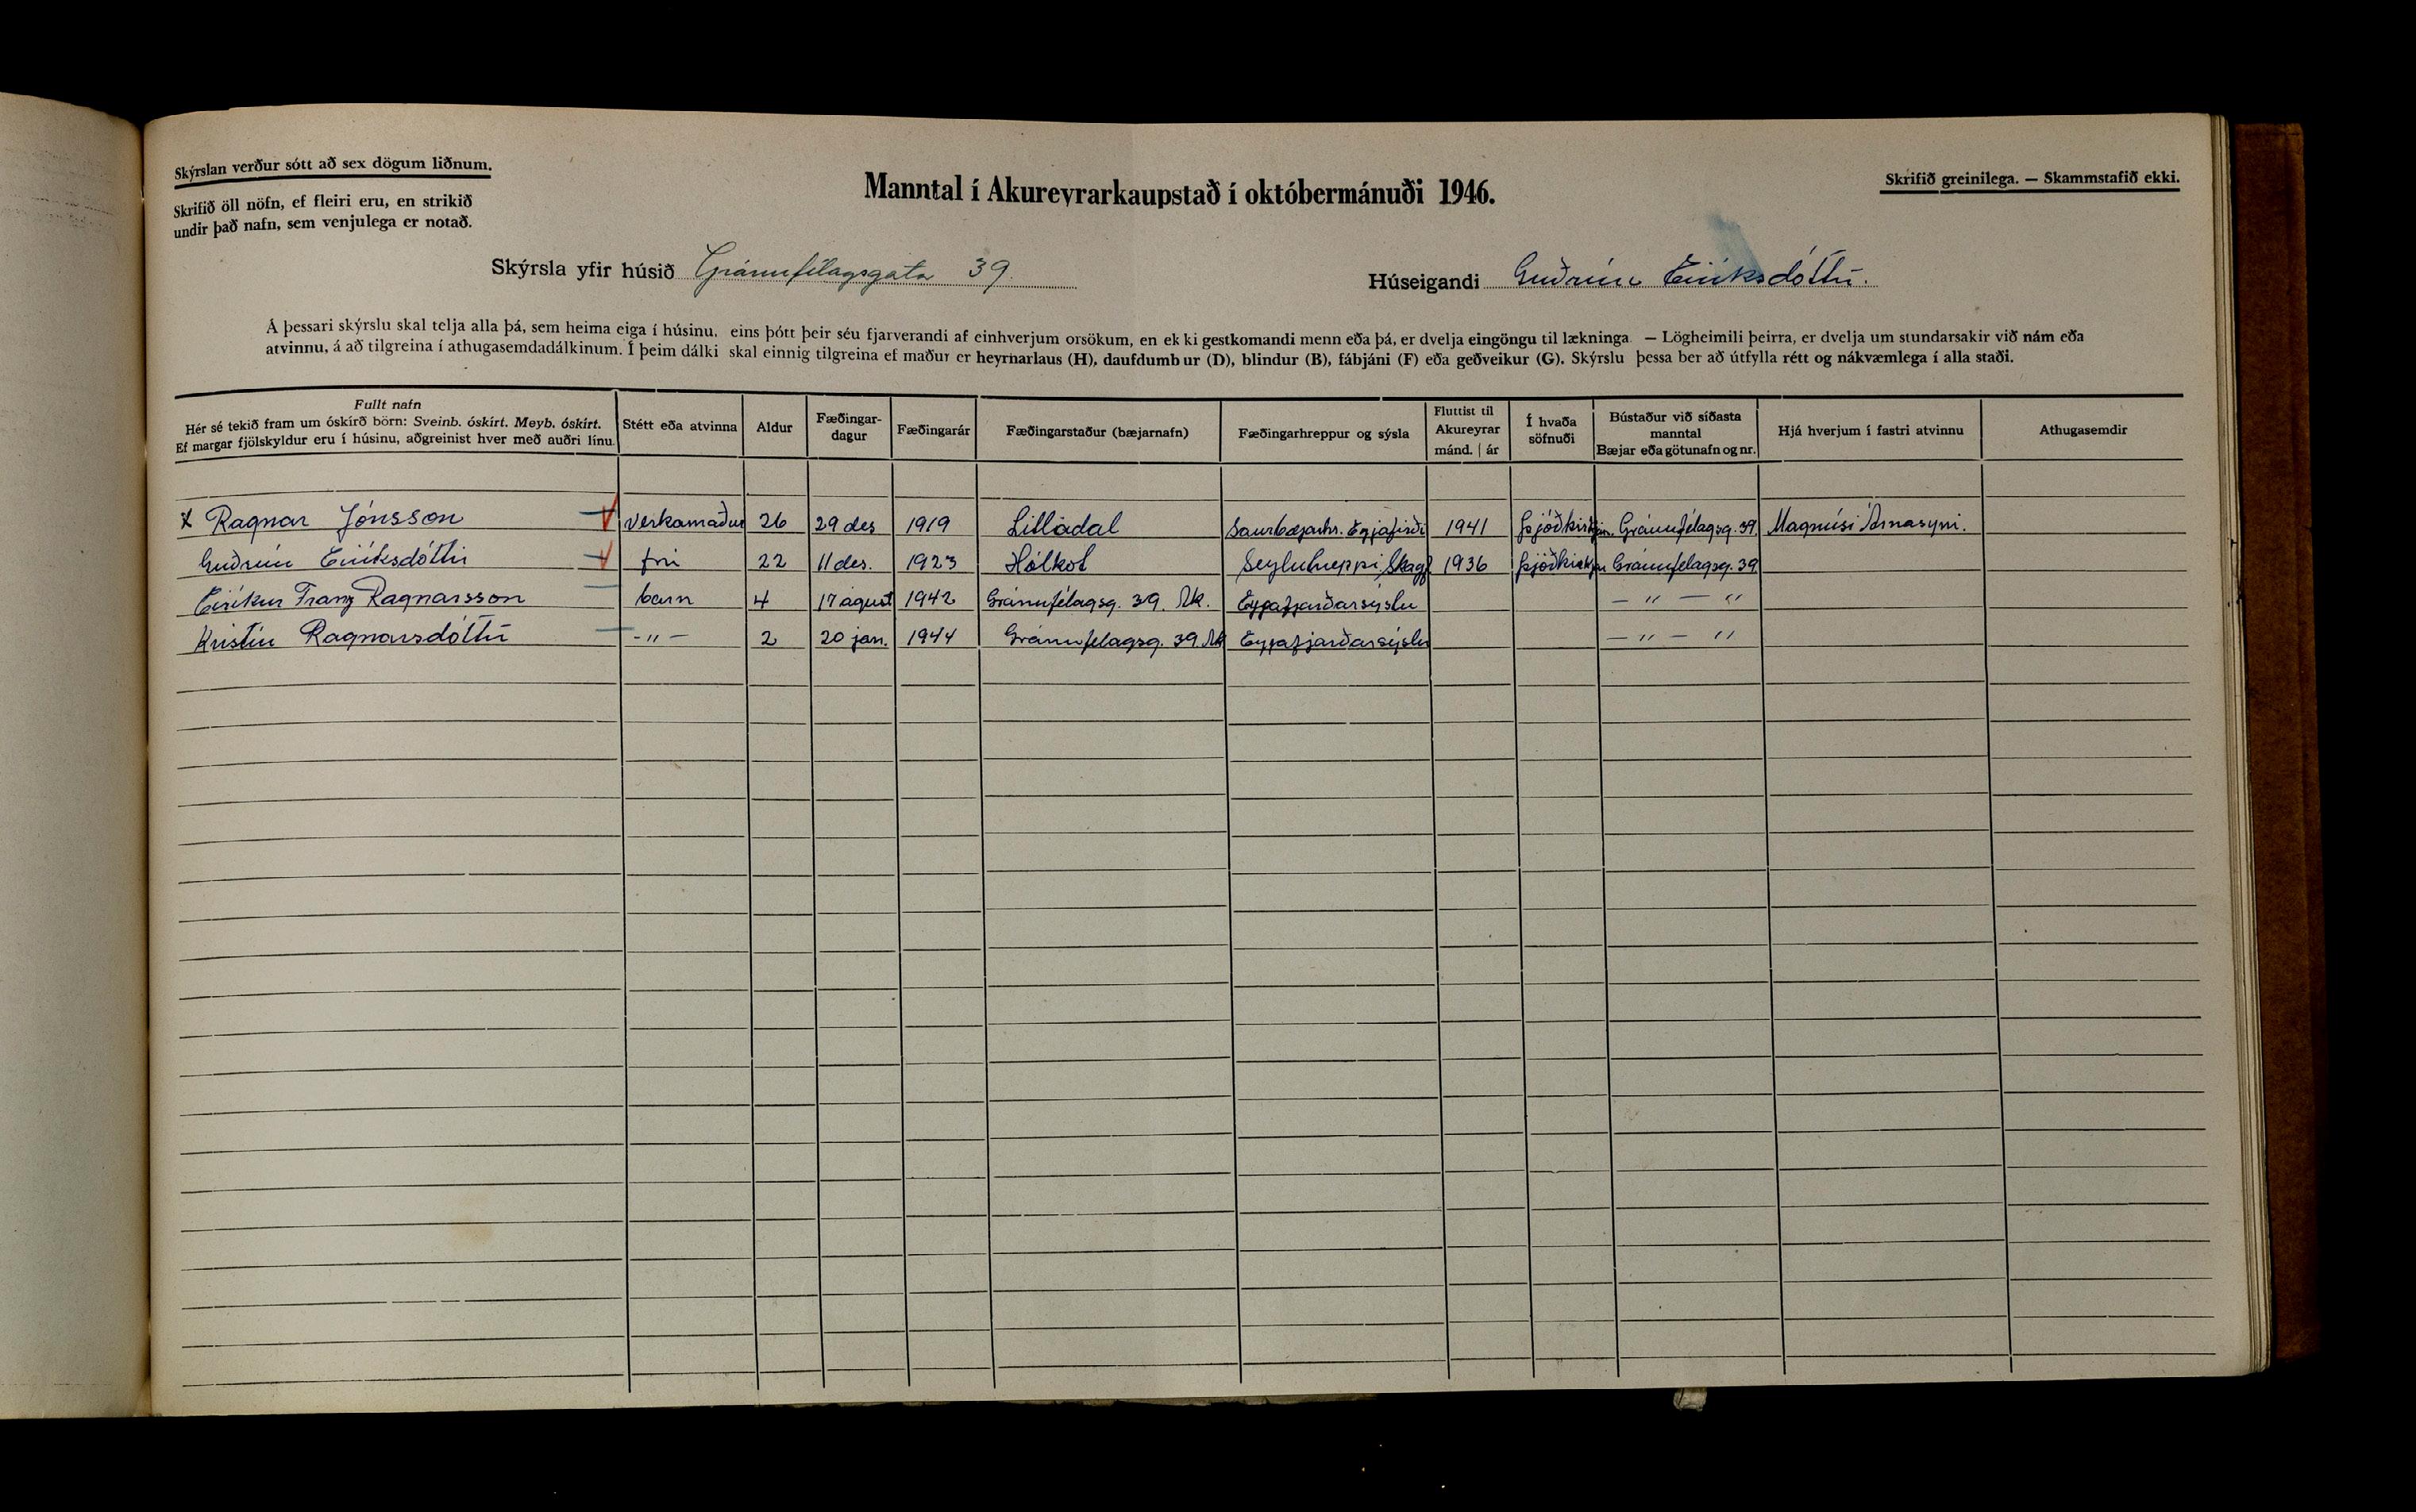 Skýrslan verður sótt að sex dögum liðnum.
Skrifið öll nöfn, ef fleiri eru, en strikið
undir það nafn, sem venjulega er notað.
Manntal í Akureyrarkaupstað í októbermánuði 1946.
Skrifið greinilega. — Skammstafið ekki.
Skýrsla yfir húsið Gránufélagsgata 39.
Húseigandi Guðrún Eiríksdóttir.
Á þessari skýrslu skal telja alla þá, sem heima eiga í húsinu, eins þótt þeir séu fjarverandi af einhverjum orsökum, en ekki gestkomandi menn eða þá, er dvelja eingöngu til lækninga. — Lögheimili þeirra, er dvelja um stundarsakir við nám eða
atvinnu, á að tilgreina í athugasemdadálkinum. Í þeim dálki skal einnig tilgreina ef maður er heyrnarlaus (H), daufdumbur (D), blindur (B), fábjáni (F) eða geðveikur (G). Skýrslu þessa ber að útfylla rétt og nákvæmlega í alla staði.
Fullt nafn
Hér sé tekið fram um óskírð börn: Sveinb. óskírt. Meyb. óskírt.
Ef margar fjölskyldur eru í húsinu, aðgreinist hver með auðri línu.
Stétt eða atvinna
Aldur
Fæðingar-
dagur
Fæðingarár
Fæðingarstaður (bæjarnafn)
Fæðingarhreppur og sýsla
Fluttist til
Akureyrar
mánd. | ár
Í hvaða
söfnuði
Bústaður við síðasta
manntal
Bæjar eða götunafn og nr.
Hjá hverjum í fastri atvinnu
Athugasemdir
x Ragnar Jónsson verkamaður 26 29 des 1919 Litladal Saurbæjarhr. Eyjafirði 1941 Þjóðkirkjun. Gránufélagsg. 39. Magnúsi Árnasyni.
Guðrún Eiríksdóttir frú 22 11 des. 1923 Hólkot Seyluhreppi Skagf 1936 Þjóðkirkju Gránufelagsg. 39
Eiríkur Franz Ragnarsson barn 4 17 ágúst 1942 Gránufélagsg. 39. Ak. Eyjafjarðarsýslu — " — "
Kristín Ragnarsdóttir - " - 2 20 jan. 1944 Gránufelagsg. 39. Ak Eyjafjarðarsýslu — " — "